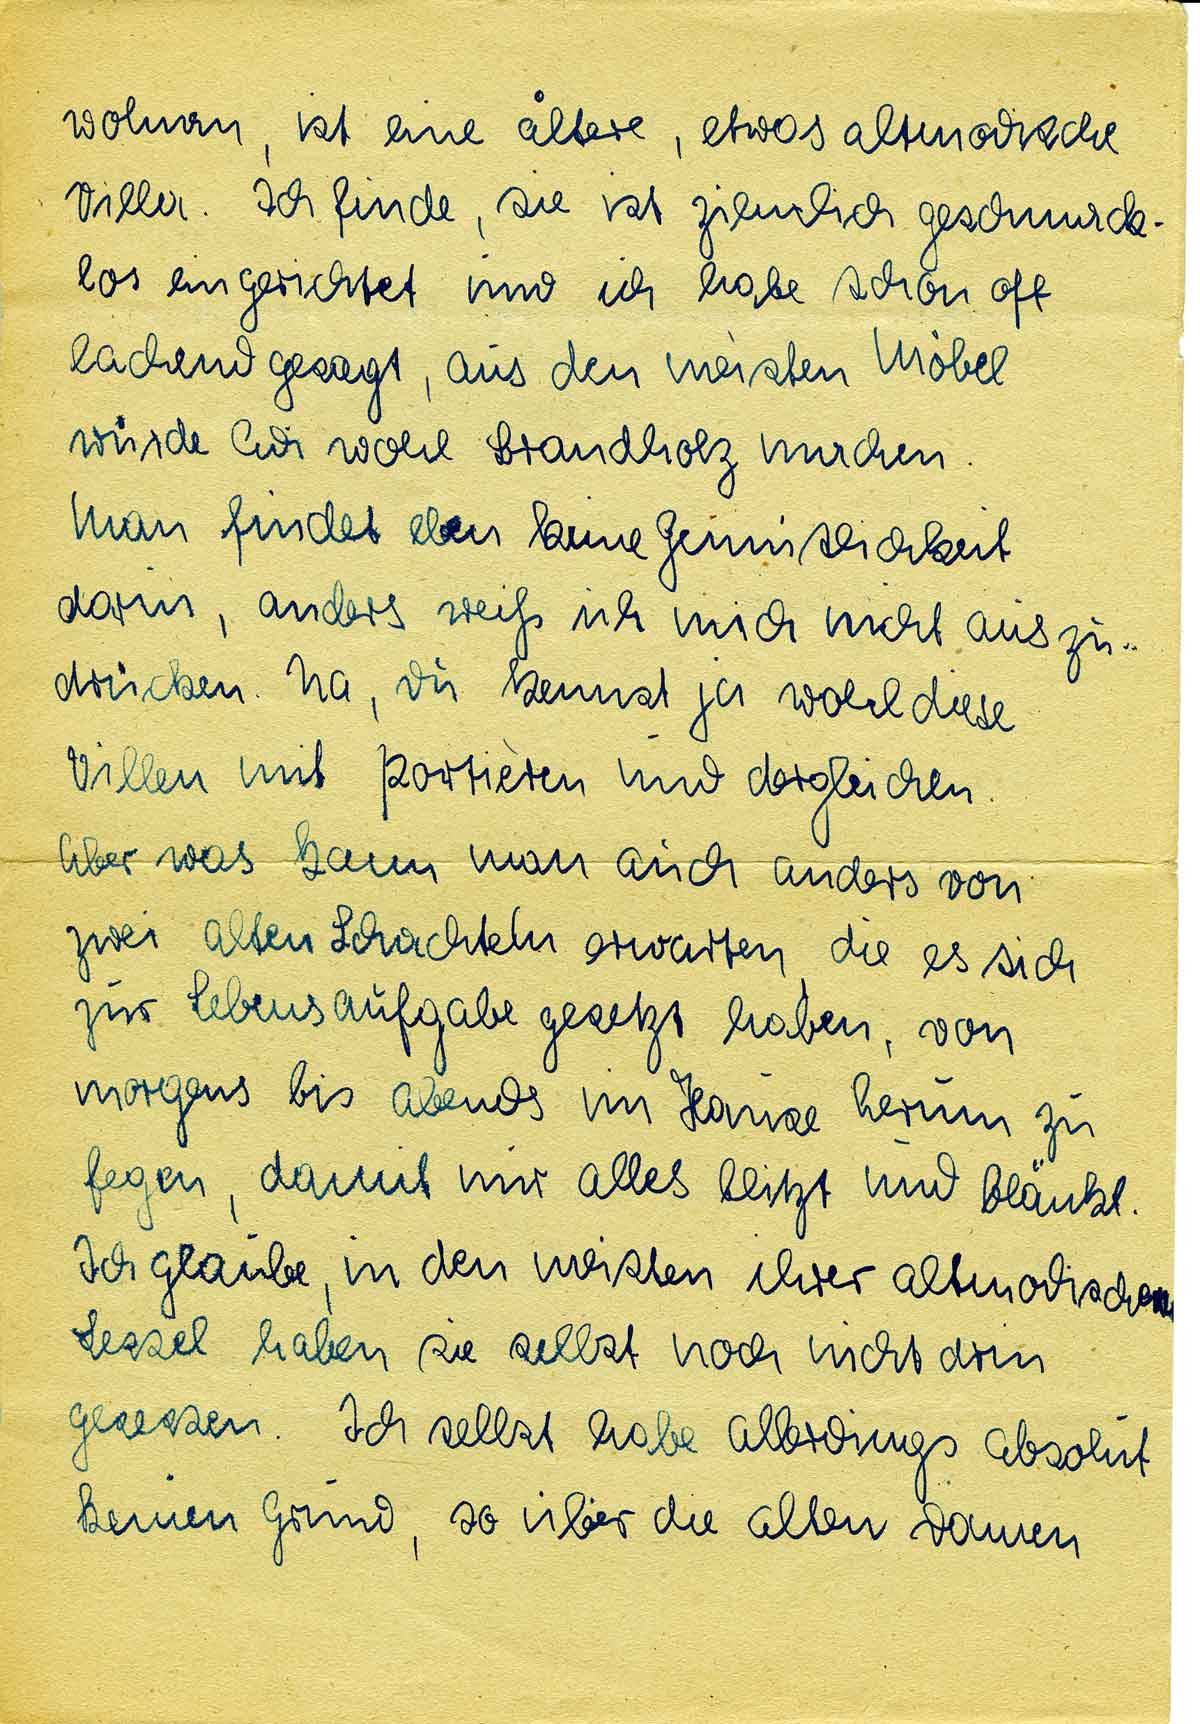 wohnen, ist eine ältere, etwas altmodische
Villa. Ich finde, sie ist ziemlich geschmack-
los eingerichtet und ich habe schon oft
lachend gesagt, aus den meisten Möbel
würde wohl Brandholz machen.
Man findet eben keine Gemütlichkeit
darin, anders weiß ich mich nicht auszu-
drücken. Na, Du kennst ja wohl diese
Villen mit Portièren und dergleichen.
Aber was kann man auch anders von
zwei alten Schachteln erwarten, die es sich
zur Lebensaufgabe gesetzt haben, von
morgens bis abends im Hause herum zu
fegen, damit nur alles blitzt und blänkt.
Ich glaube, in den meisten ihrer altmodischen
Sessel haben sie selbst noch nicht drin
gesessen. Ich selbst habe allerdings absolut
keinen Grund, so über die alten Damen